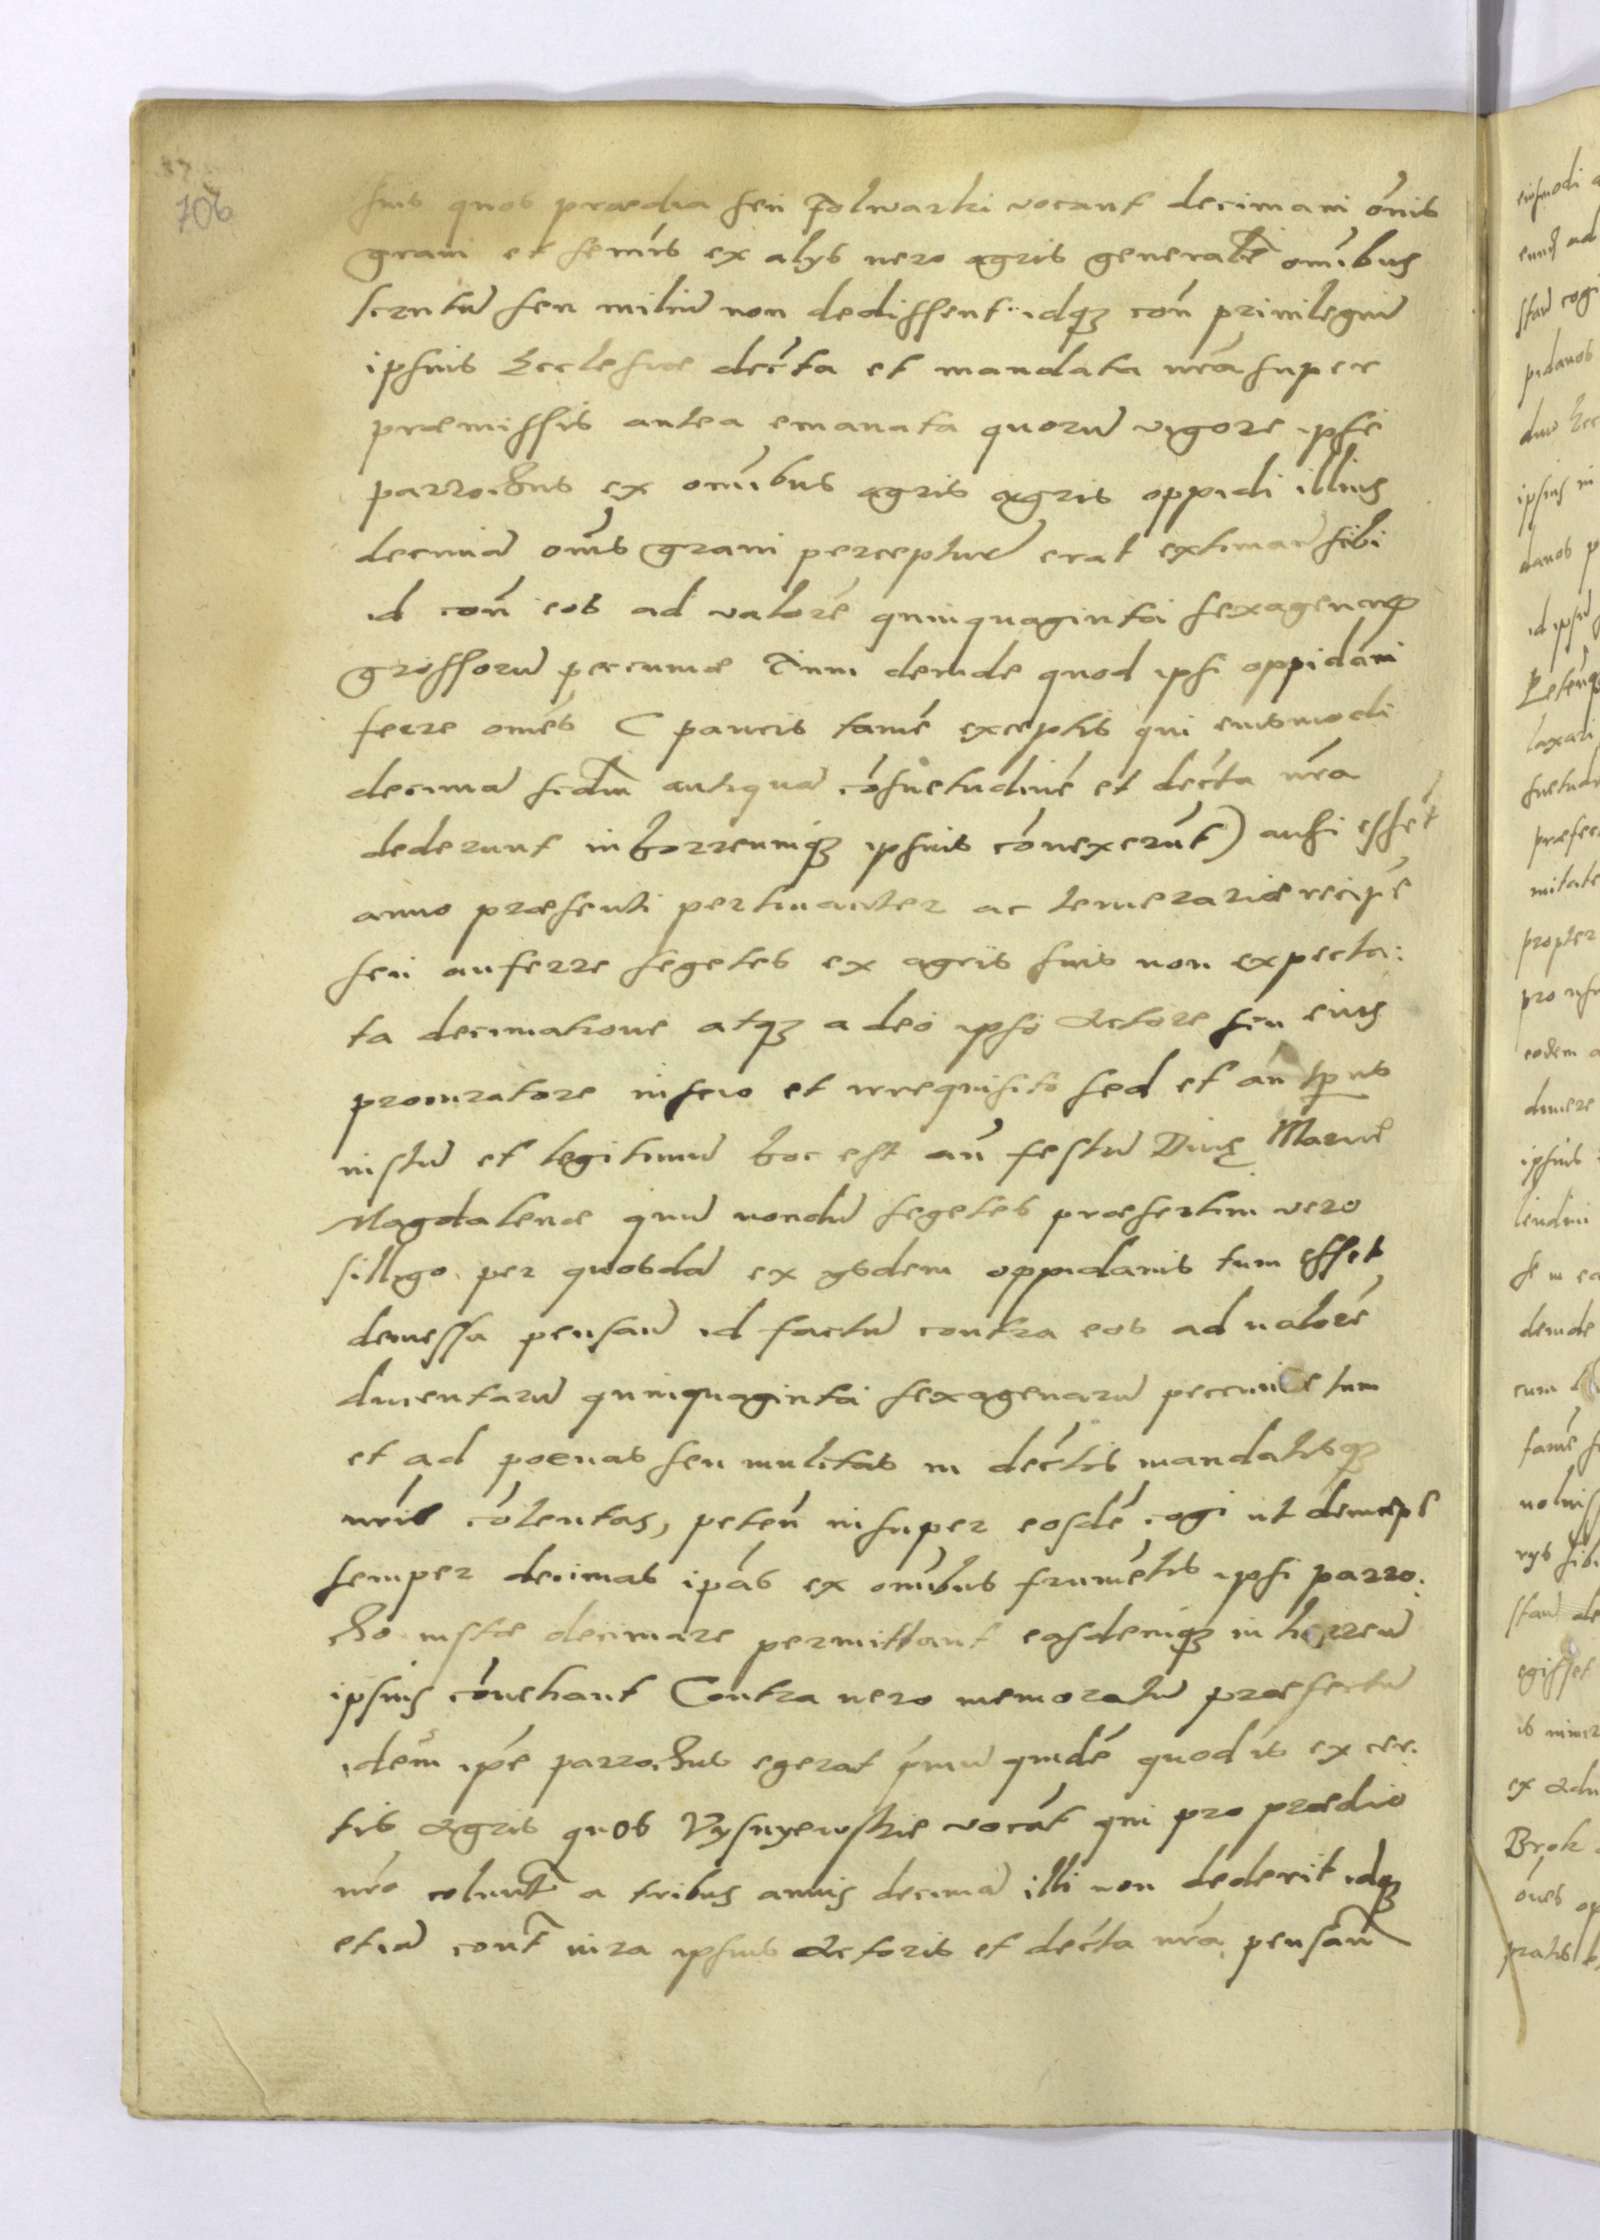 106
suis quos prædia seu Folwarki vocant decimam o͞nis
grani et semi͞s ex alys vero agris genera͞le om͞ibus
scrutu͞ seu miliu͞ non dedissent idqꝫ con͞ privilegiu͞
ipsius Ecclesiæ dec͞ta et mandata n͞ra super
præmissis antea emanata quoru͞ vigore ipse
parrochus ex om͞ibus agris agris oppidi illius
decima͞ om͞is grani percepturu͞ erat extiman͞ sibi
id con͞ eos ad valore͞ quinquaginta sexagenaꝝ
grossoru͞ pecuniæ Tum deinde quod ipsi oppidani
ferre om͞es ( paucis tame͞ exceptis qui eiusmodi
decima͞ s͞cdm antiqua͞ co͞suetudine͞ et dec͞ta n͞ra
dederunt in horreumqꝫ ipsius co͞uexeru͞t) ausi esse͞t
anno præsenti pertinaciter ac temerariæ recipe͞
seu auferre segetes ex agris suis non expecta:
ta decimatione atqꝫ adeo ipso Actore seu eius
procuratore inscio et irrequisito sed et an͞ tp͞us
iustu͞ et legitimu͞ hoc est an͞ festu͞ Diuę Mariæ
Magdalenæ quu͞ nondu͞ segetes præsertim vero
silligo per quosda͞ ex ysdem oppidanis tum esset
demessa pensan͞ id factu͞ contra eos ad valore͞
ducentaru͞ quinquaginta sexagenaru͞ pecuniæ tum
et ad poenas seu mulctas in dec͞tis mandatisqꝫ
n͞ris co͞tentas, peten͞ insuper eosde͞ cogi ut deincep͞s
semper decimas ip͞as ex om͞ibus frume͞tis ipsi parro:
cho iustæ decimare permittant easdemqꝫ in horreu͞
ipsius co͞uehant Contra vero memoratu͞ præfectu͞
idem ip͞e parrochus egerat p͞mu͞ quide͞ quod is ex cer:
tis Agris quos Vysnyewskie voca͞t qui pro prædio
n͞ro colunt͞ a tribus annis decima͞ illi non dederit idqꝫ
etia͞ cont͞ iura ipsius Actoris et dec͞ta n͞ra pensan͞